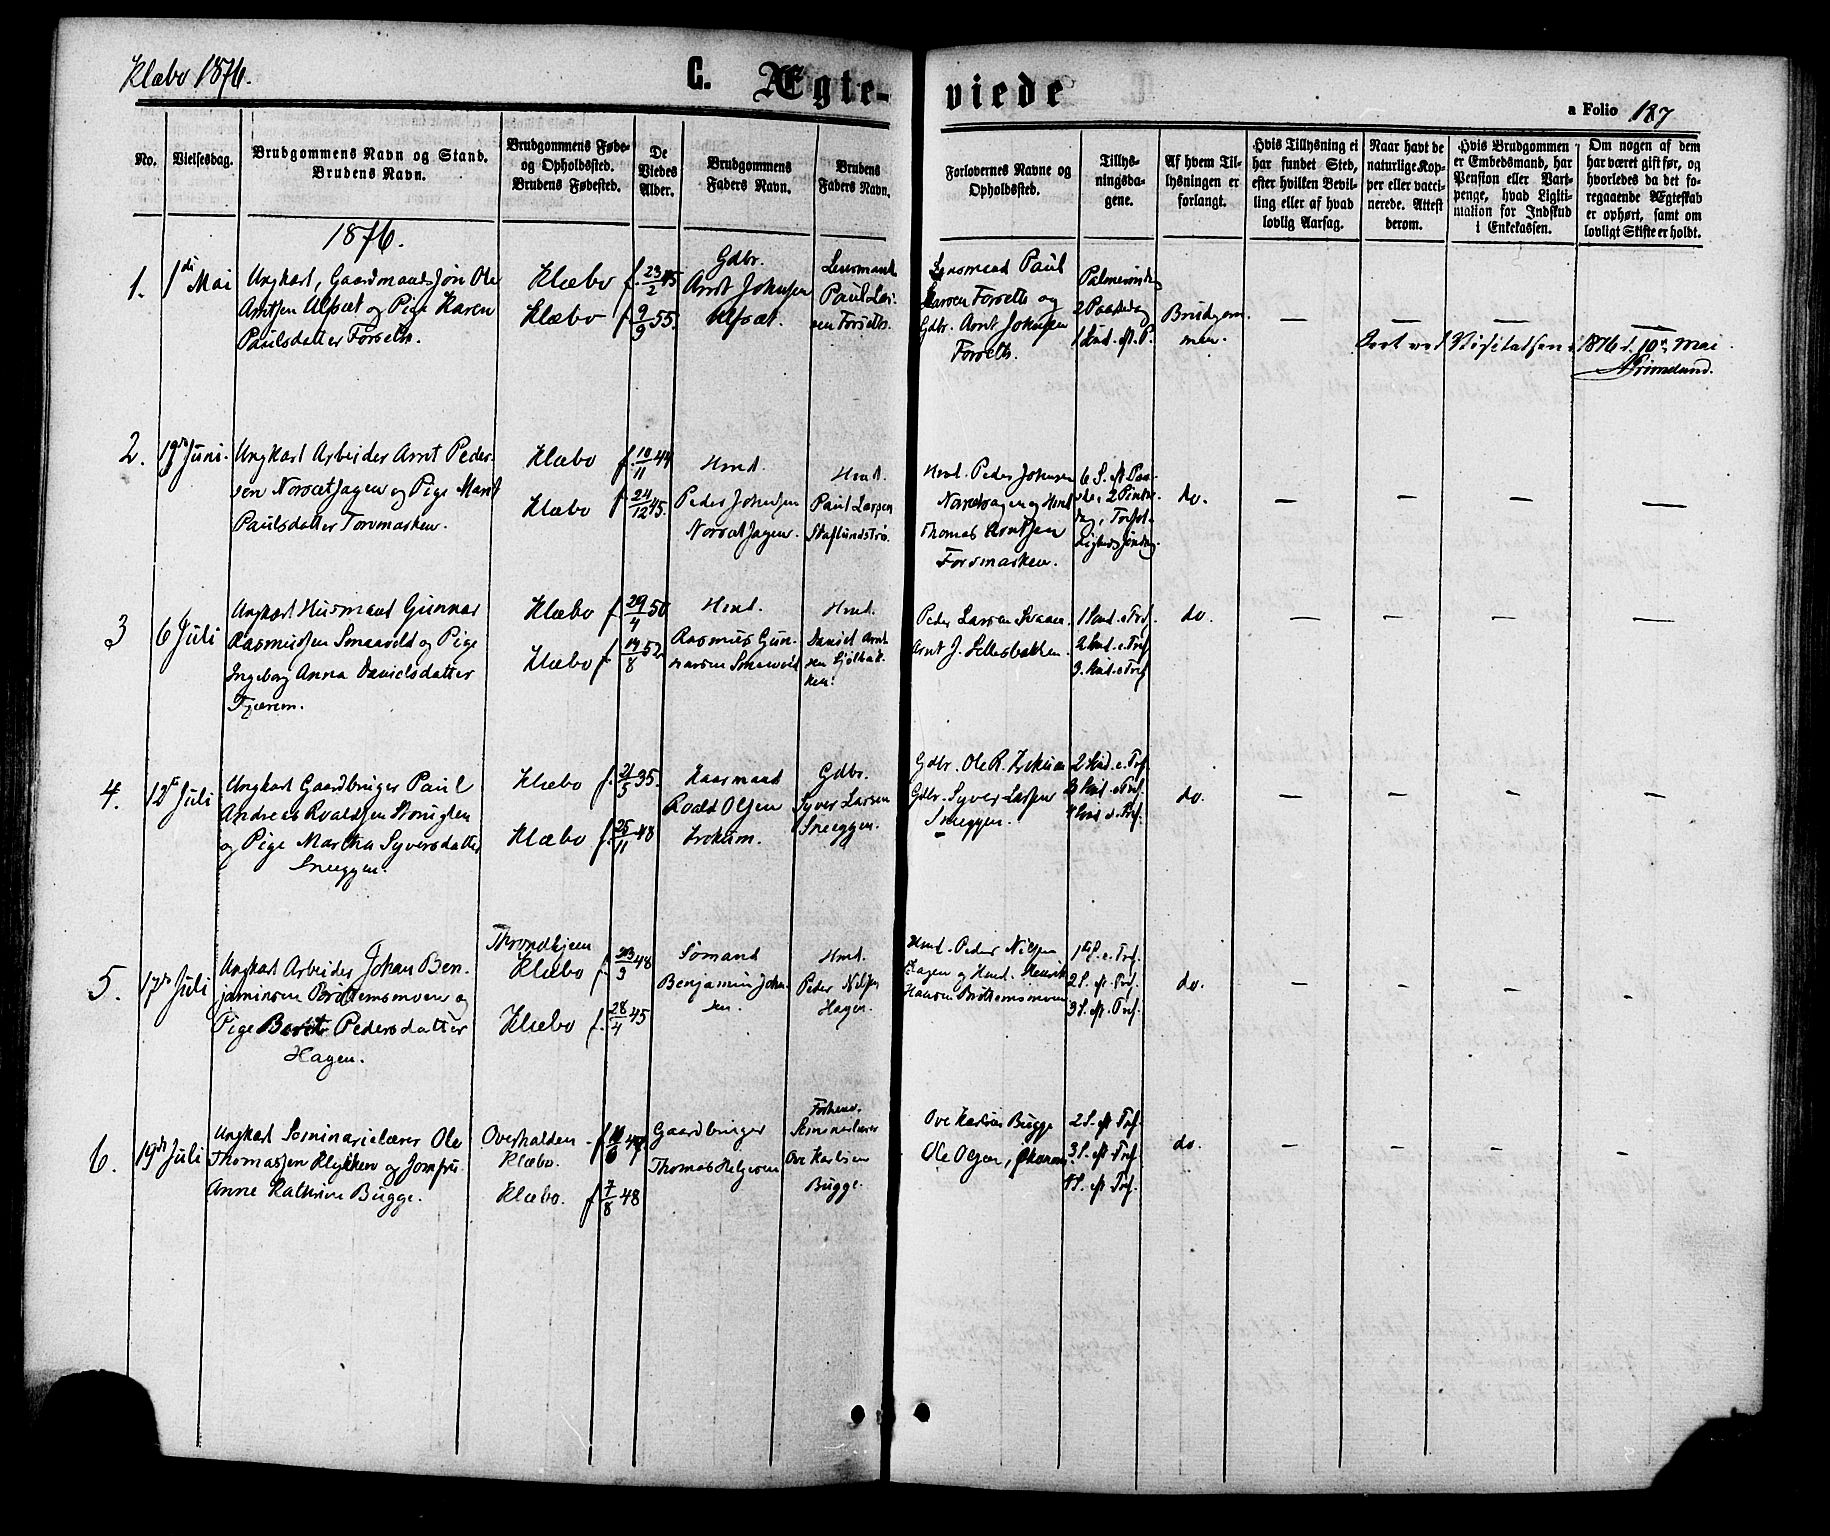 Klæbo 1876.
C. Ægte-
viede
a Folio 187
No.
Vielsesdag.
Brudgommens Navn og Stand.
Brudens Navn.
Brudgommens Føde-
og Opholdssted.
Brudens Fødested.
De
Viedes
Alder.
Brudgommens
Faders Navn.
Brudens
Faders Navn.
Forlovernes Navne og
Opholdssted.
Tillys-
ningsda-
gene.
Af hvem Til-
lysningen er
forlangt.
Hvis Tillysning ei
har fundet Sted,
efter hvilken Bevil-
ling eller af hvad
lovlig Aarsag.
Naar havt de
naturlige Kop-
per eller vacci-
nerede. Attest
derom.
Hvis Brudgommen
er Embedsmand, har
Pension eller Vart-
penge, hvad Ligiti-
mation for Indskud
i Enkekassen.
Om nogen af dem
har været gift før, og
hvorledes da det fo-
regaaende Ægteskab
er ophørt, samt om
lovligt Skifte er holdt.
1876.
1.
1ste Mai
Ungkarl, Gaardmandssøn Ole
Arntsen Ulfsæt og Pige Karen
Paulsdatter Forseth.
Klæbo
Klæbo
f. 23/2 45
f. 9/9 55.
Gdbr.
Arnt Johnsen
Ulfsæt.
Lensmand
Paul Lar-
sen Forseth.
Lensmand Paul
Larsen Forseth og
Gdbr. Arnt Johnsen
Forseth.
Palmesøndag
2 Paaskedag
1 Sønd. eft. P.
Brudgom-
men.
—
—
—
—
Seet ved Visitatsen i 1876 d. 10de Mai
Grimelund.
2.
19de Juni.
Ungkarl Arbeider Arnt Peder-
sen Norsætsagen og Pige Marit
Paulsdatter Forsmarken.
Klæbo
Klæbo
f. 10/11 44
f 24/12 45.
Hmd.
Peder Johnsen
Norsætsagen.
Hmd.
Paul Larsen
Hmd. Peder Johnsen
Norsætsagen og Hmd
Thomas Arntsen
Forsmarken.
6 S. eft Paa-
ske, 2 Pintse-
dag, Trefol-
digheds søndag.
do.
—
—
—
—
3
6 Juli
Ungkarl Husmand Gunnar
Rasmussen Smaavold og Pige
Ingeborg Anna Danielsdatter
Tjærem.
Klæbo
Klæbo
f. 29/4 50
f 14/8 52
Hmd.
Rasmus Gun-
narsen Smaavold
Hmd.
Daniel Arnt
sen Gjelbak-
ken.
Peder Larsen Svaan.
Arnt J. Sellesbakken.
1 Sønd. e. Tref.
2 Sønd. e. Tref
3. Sønd. e. Tref
do.
—
—
—
—
4.
12te Juli
Ungkarl Gaardbruger Paul
Andreas Roaldsen
og Pige Martha Syversdatter
Sneeggen.
Klæbo
Klæbo
f. 21/5 35.
f. 25/11 48
Kaarmand
Roald Olsen
Gdbr.
Syver Larsen
Sneeggen.
Gdbr. Ole R.
Gdbr. Syver Larsen
Sneeggen.
2 Sønd. e. Tref.
3 Sønd. e. Tref.
4 Sønd. e. Tref.
do.
—
—
—
—
5.
17de Juli
Ungkarl Arbeider Johan Ben-
jaminsen Brøttemsmoen og
Pige Berit Pedersdatter
Hagen.
Throndhjem
Klæbo
Klæbo
f. 23/3 48
f. 28/4 45
Sømand
Benjamin Johan-
sen.
Hmd.
Peder Nilsen
Hagen.
Hmd. Peder Nilsen
Hagen og Hmd. Henrik
Hansen Brøttemsmoen
1ste S. e. Tref.
2 S. eft. Tref.
3 S. eft. Tref.
do.
—
—
—
—
6.
19de Juli
Ungkarl Seminarielærer Ole
Thomassen Klykken og Jomfru
Anne Kathrine Bugge.
Overhalden
Klæbo.
Klæbo.
f 10/6 47.
f 7/8 48
Gaardbruger
Thomas Helgesen
Forhenv.
Seminarlærer
Ove Karlsen
Bugge.
Ove Karlsen Bugge
Ole Olsen,
2 S. eft Tref.
3 S. eft. Tref.
4 S. eft Tref.
do.
—
—
—
—